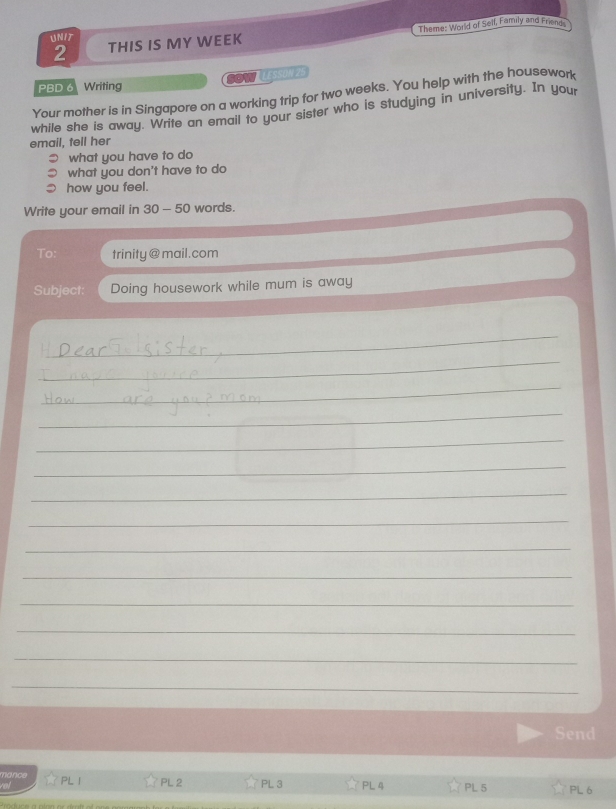 Theme: World of Self, Family and Friends
UNIT
2
THIS IS MY WEEK
PBD 6 Writing
SOW LESSON 25
Your mother is in Singapore on a working trip for two weeks. You help with the housework
while she is away. Write an email to your sister who is studying in university. In your
email, tell her
what you have to do
what you don't have to do
how you feel.
Write your email in 30 – 50 words.
To: trinity@mail.com
Subject: Doing housework while mum is away
Dear sister,
How are you? mom
Send
PL 1 PL 2 PL 3 PL 4 PL 5 PL 6